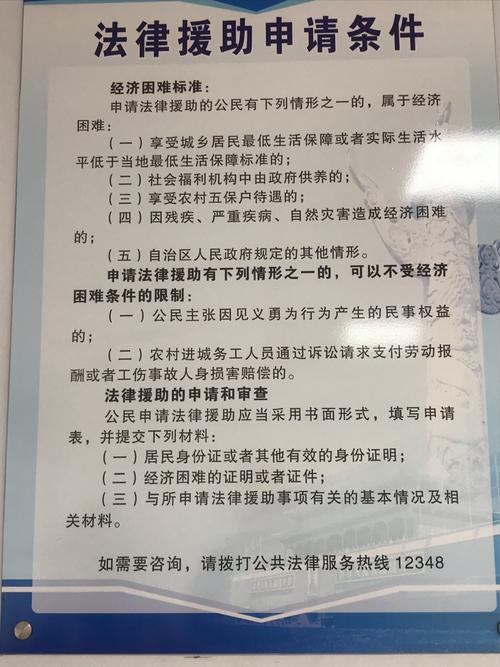 法律援助申请条件
经济困难标准：
申请法律援助的公民有下列情形之一的，属于经济
困难：
（一）享受城乡居民最低生活保障或者实际生活水
平低于当地最低生活保障标准的；
（二）社会福利机构中由政府供养的；
（三）享受农村五保户待遇的；
（四）因残疾、严重疾病、自然灾害造成经济困难
的；
（五）自治区人民政府规定的其他情形。
申请法律援助有下列情形之一的，可以不受经济
困难条件的限制：
（一）公民主张因见义勇为行为产生的民事权益
的；
（二）农村进城务工人员通过诉讼请求支付劳动报
酬或者工伤事故人身损害赔偿的。
法律援助的申请和审查
公民申请法律援助应当采用书面形式，填写申请
表，并提交下列材料：
（一）居民身份证或者其他有效的身份证明；
（二）经济困难的证明或者证件；
（三）与所申请法律援助事项有关的基本情况及相
关材料。
如需要咨询，请拨打公共法律服务热线 12348